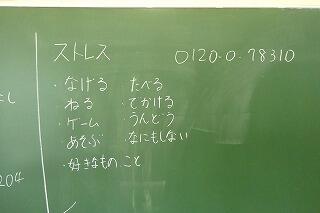 ストレス 0120-0-78310
・なげる たべる
ねる ・でかける
・ゲーム ・うんどう
あそぶ ・なにもしない
・好きなもの こと
し
204